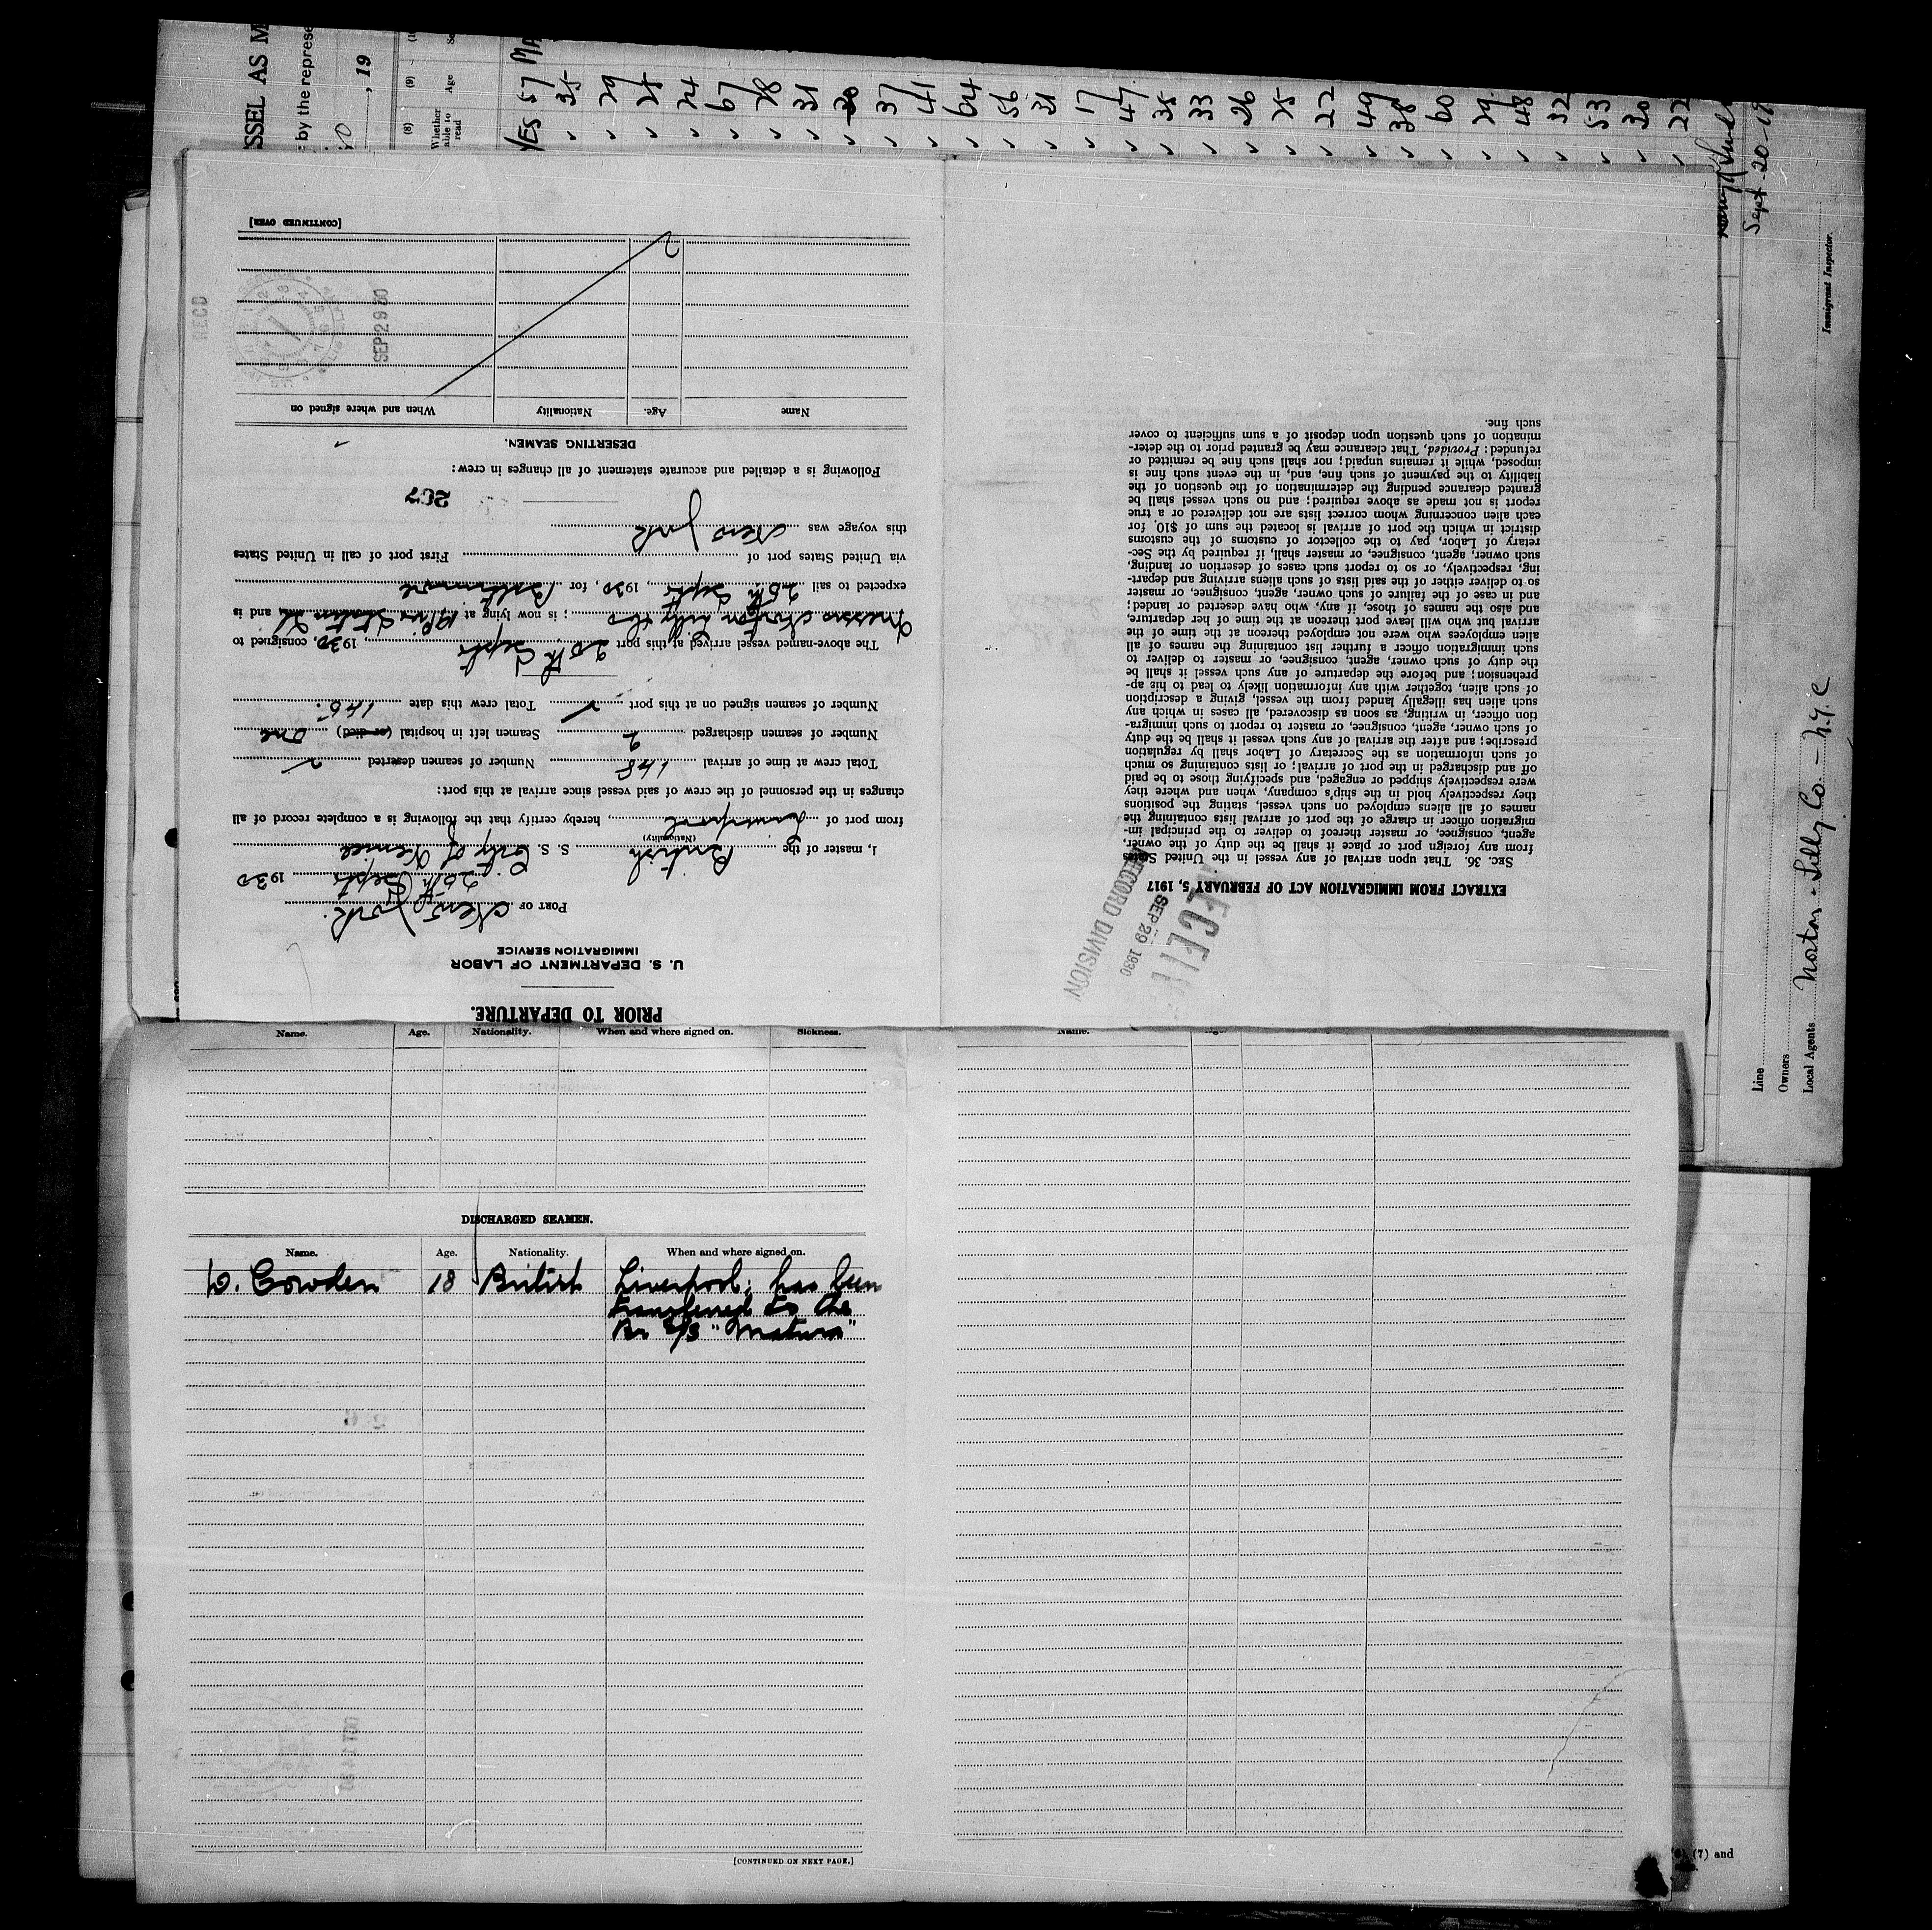 SSEL AS M
by the represe
, 19
(8)
(9)
Whether
able to
read
Age
YES 57
35
29
24
67
28
31
30
37
41
64
56
31
17
47
35
33
26
25
22
49
38
60
29
48
32
53
30
22
Sept. 20-19
Immigrant Inspector.
Line
Owners
Local Agents Norton Lilly Co. - N.Y.C
PRIOR TO DEPARTURE.
U. S. DEPARTMENT OF LABOR
IMMIGRATION SERVICE
PORT OF New York.
25th Septr 1930
I, master of the British S. S. City of
(Nationality)
from port of Liverpool, hereby certify that the following is a complete record of all
changes in the personnel of the crew of said vessel since arrival at this port:
Total crew at time of arrival 148 Number of seamen deserted
Number of seamen discharged 2 Seamen left in hospital (or died) one
Number of seamen signed on at this port Total crew this date 145.
The above-named vessel arrived at this port 20th Septr, 1930, consigned to
Messrs Norton Lilly & Co; is now lying at and is
expected to sail 25th Septr, 1930, for Baltimore
via United States port of First port of call in United States
this voyage was New York
207
Following is a detailed and accurate statement of all changes in crew:
DESERTING SEAMEN.
Name Age. Nationality When and where signed on
[CONTINUED OVER]
RECD
SEP 29 30
EXTRACT FROM IMMIGRATION ACT OF FEBRUARY 5, 1917
SEC. 36. That upon arrival of any vessel in the United States
from any foreign port or place it shall be the duty of the owner,
agent, consignee, or master thereof to deliver to the principal im-
migration officer in charge of the port of arrival lists containing the
names of all aliens employed on such vessel, stating the positions
they respectively hold in the ship's company, when and where they
were respectively shipped or engaged, and specifying those to be paid
off and discharged in the port of arrival; or lists containing so much
of such information as the Secretary of Labor shall by regulation
prescribe; and after the arrival of any such vessel it shall be the duty
of such owner, agent, consignee, or master to report to such immigra-
tion officer, in writing, as soon as discovered, all cases in which any
such alien has illegally landed from the vessel, giving a description
of such alien, together with any information likely to lead to his ap-
prehension; and before the departure of any such vessel it shall be
the duty of such owner, agent, consignee, or master to deliver to
such immigration officer a further list containing the names of all
alien employees who were not employed thereon at the time of the
arrival but who will leave port thereon at the time of her departure,
and also the names of those, if any, who have deserted or landed;
and in case of the failure of such owner, agent, consignee, or master
so to deliver either of the said lists of such aliens arriving and depart-
ing, respectively, or so to report such cases of desertion or landing,
such owner, agent, consignee, or master shall, if required by the Sec-
retary of Labor, pay to the collector of customs of the customs
district in which the port of arrival is located the sum of $10 for
each alien concerning whom correct lists are not delivered or a true
report is not made as above required; and no such vessel shall be
granted clearance pending the determination of the question of the
liability to the payment of such fine, and, in the event such fine is
imposed, while it remains unpaid; nor shall such fine be remitted or
refunded: Provided, That clearance may be granted prior to the deter-
mination of such question upon deposit of a sum sufficient to cover
such fine.
SEP 29 1930
RECORD DIVISION
Name. Age. Nationality. When and where signed on. Sickness.
Name.
DISCHARGED SEAMEN.
Name. Age. Nationality. When and where signed on.
W. Cowden 18 British Liverpool; has been
transferred to the
Br S/S "Matura"
[CONTINUED ON NEXT PAGE.]
(7) and